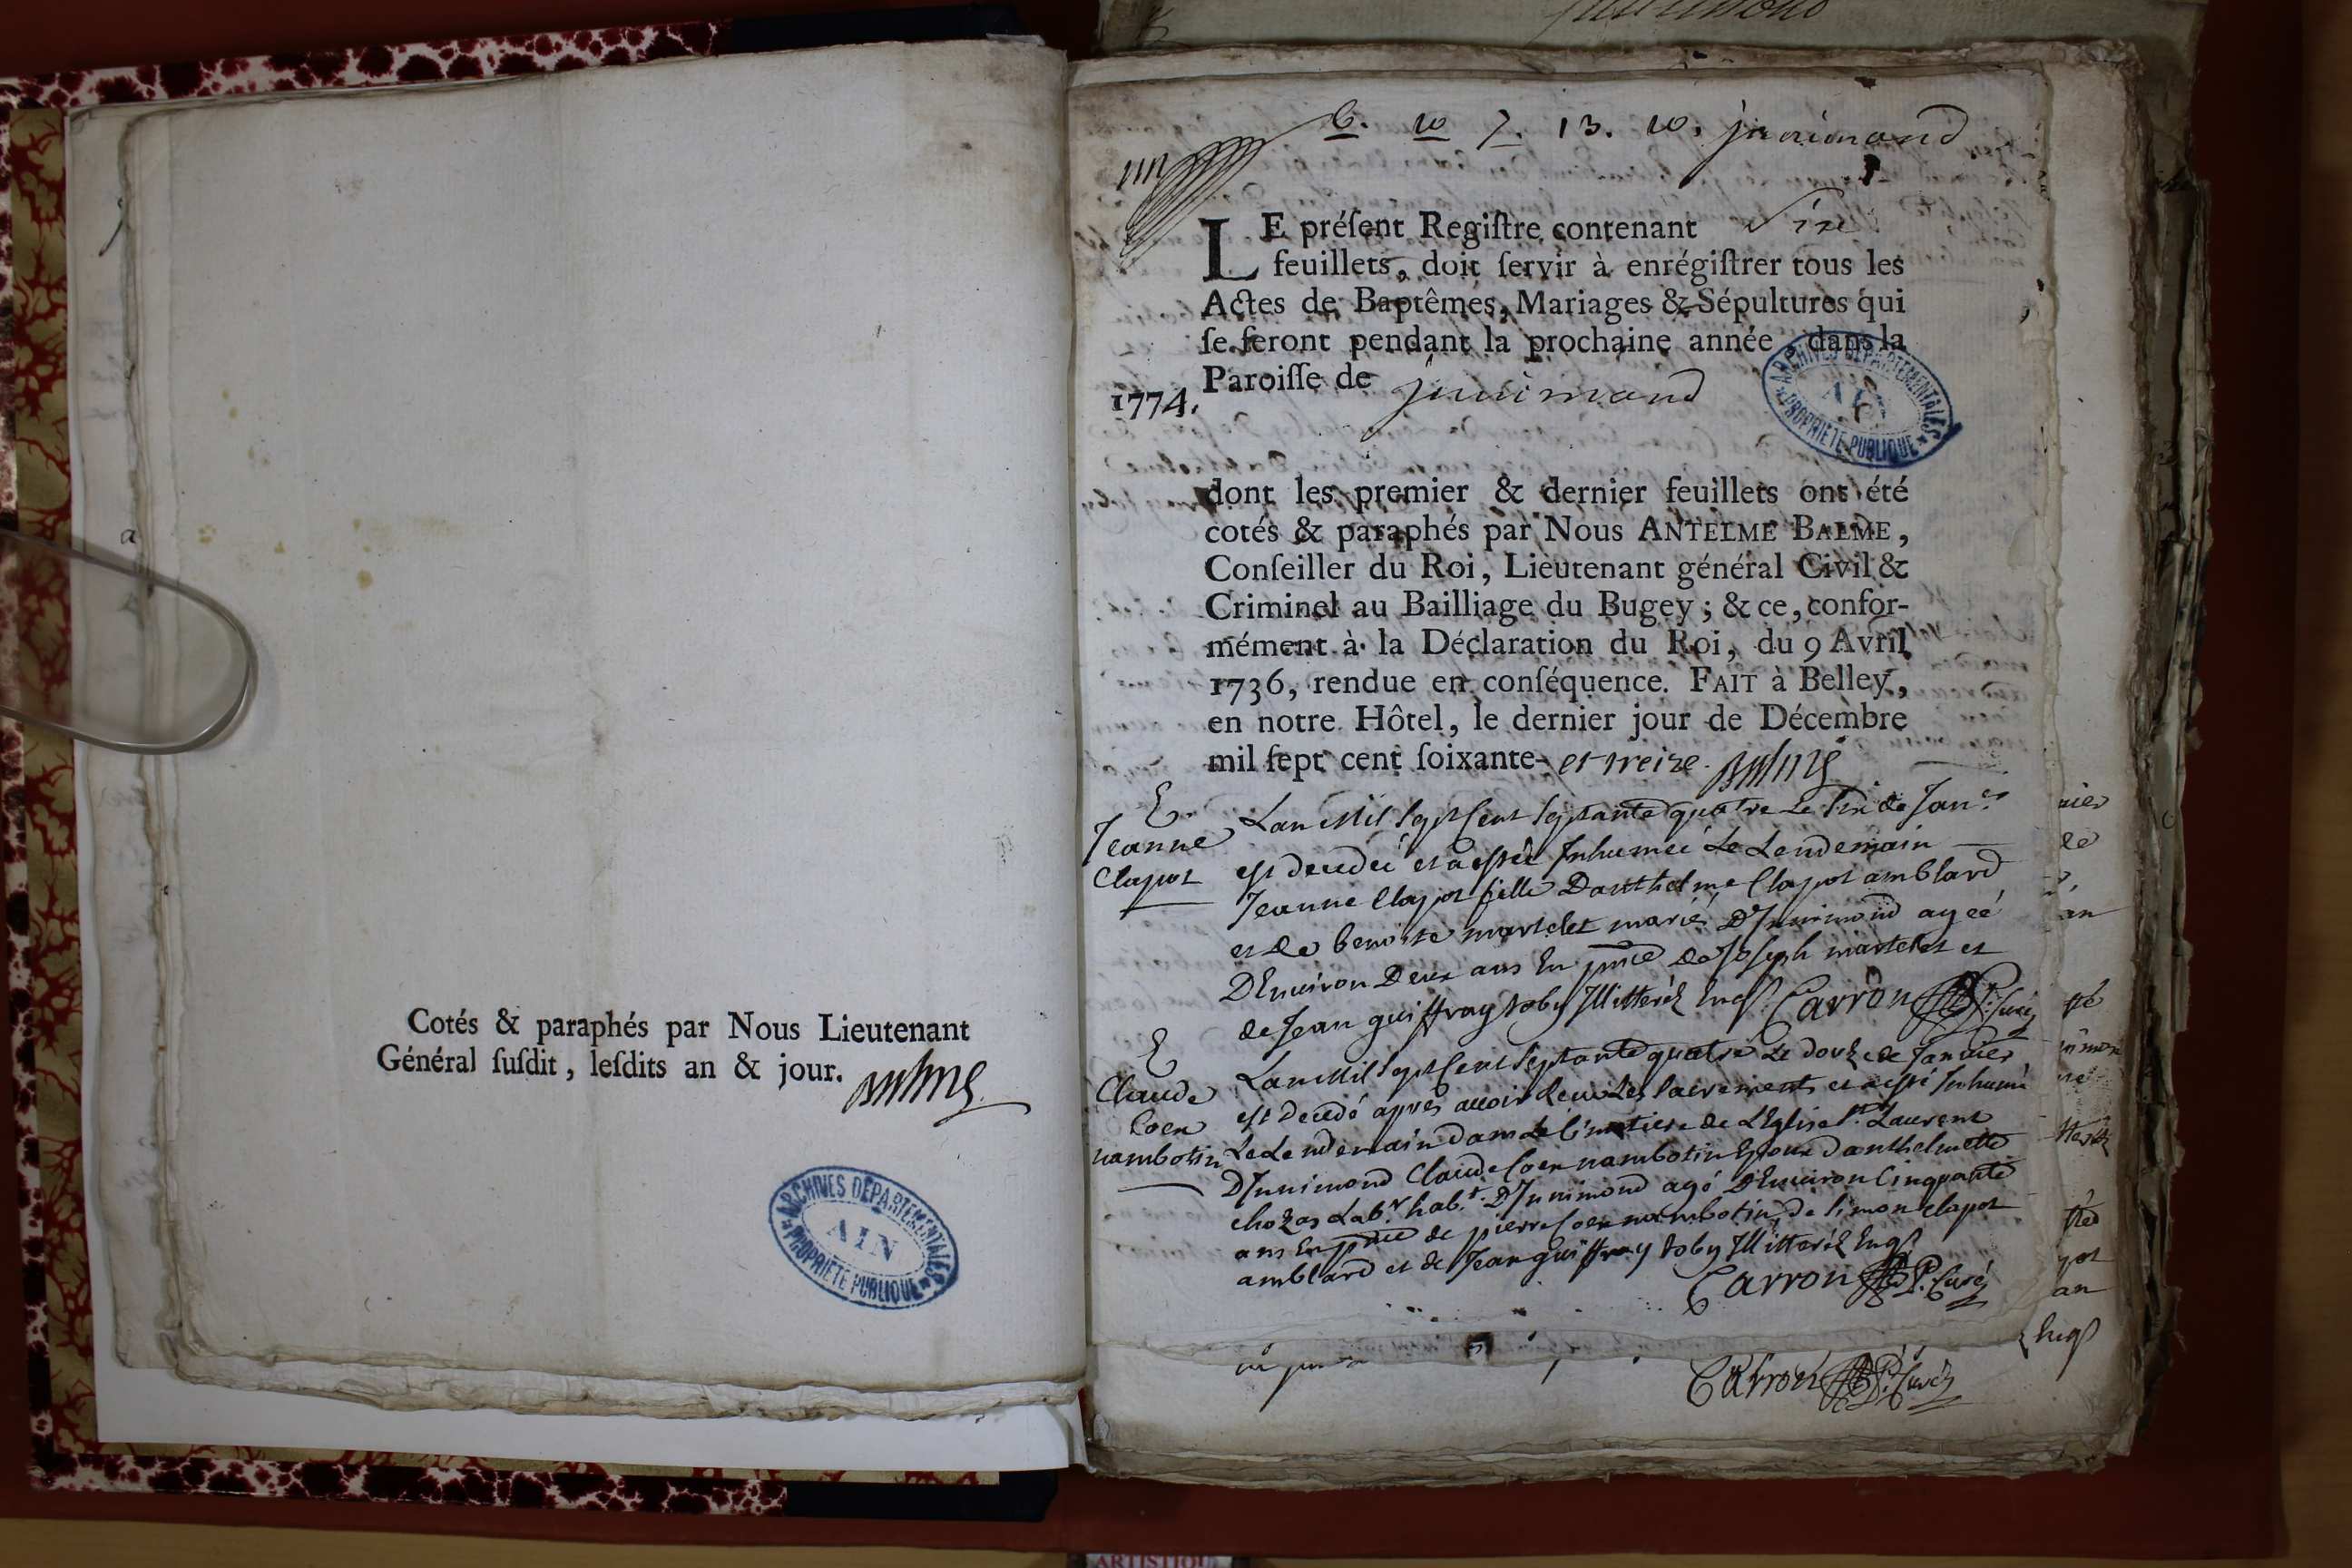 Cotés & paraphés par Nous Lieutenant
Général ſuſdit, leſdits an & jour.
Balme
ARCHIVES DÉPARTEMENTALES
AIN
PROPRIÉTÉ PUBLIQUE
6. 10 7. 13. 10. junimond
LE préſent Regiſtre contenant Six
feuillets, doit ſervir à enrégiſtrer tous les
Actes de Baptêmes, Mariages & Sépultures qui
ſe feront pendant la prochaine année dans la
1774. Paroiſſe de junimond
ARCHIVES DÉPARTEMENTALES
AIN
PROPRIÉTÉ PUBLIQUE
dont les premier & dernier feuillets ont été
cotés & paraphés par Nous ANTELME BALME,
Conſeiller du Roi, Lieutenant général Civil &
Criminel au Bailliage du Bugey; & ce, confor-
mément à la Déclaration du Roi, du 9 Avril
1736, rendue en conſéquence. FAIT à Belley,
en notre Hôtel, le dernier jour de Décembre
mil ſept cent ſoixante- et treize. Balme
E
Jeanne
Clapot
Lan Mil Sept Cent Septante quatre Le Six de Janer
est decedeé et a esté Inhumeé Le Lendemain
Jeanne Clapot fille Danthelme Clapot amblard
et de benoite martelet mariés D'Junimond ageé
D'Environ Deux ans En pnce de Joseph martelet et
de Jean guiffray toby Illitteréz Enqs Carron P. Curé
E
Claude
Coen
nambotin
Lan Mil Sept Cent Septante quatre Le douze de Janvier
est decedé apres avoir Receu Les Sacrements et a esté Inhumé
Le Lendemain dans Le Cimetiere de L'Eglise St. Laurent
D'Junimond Claude Coen nambotin Epoux danthelmette
chozas Labr. habt. D'Junimond agé D'Environ Cinquante
ans En pnce de pierre Coen nambotin, de Simon Clapot
amblard et de Jean guiffray toby Illitteréz Enqs
Carron P. Curé
Carron P. Curé
nier
de
an
Enqs
ARTISTIQUE